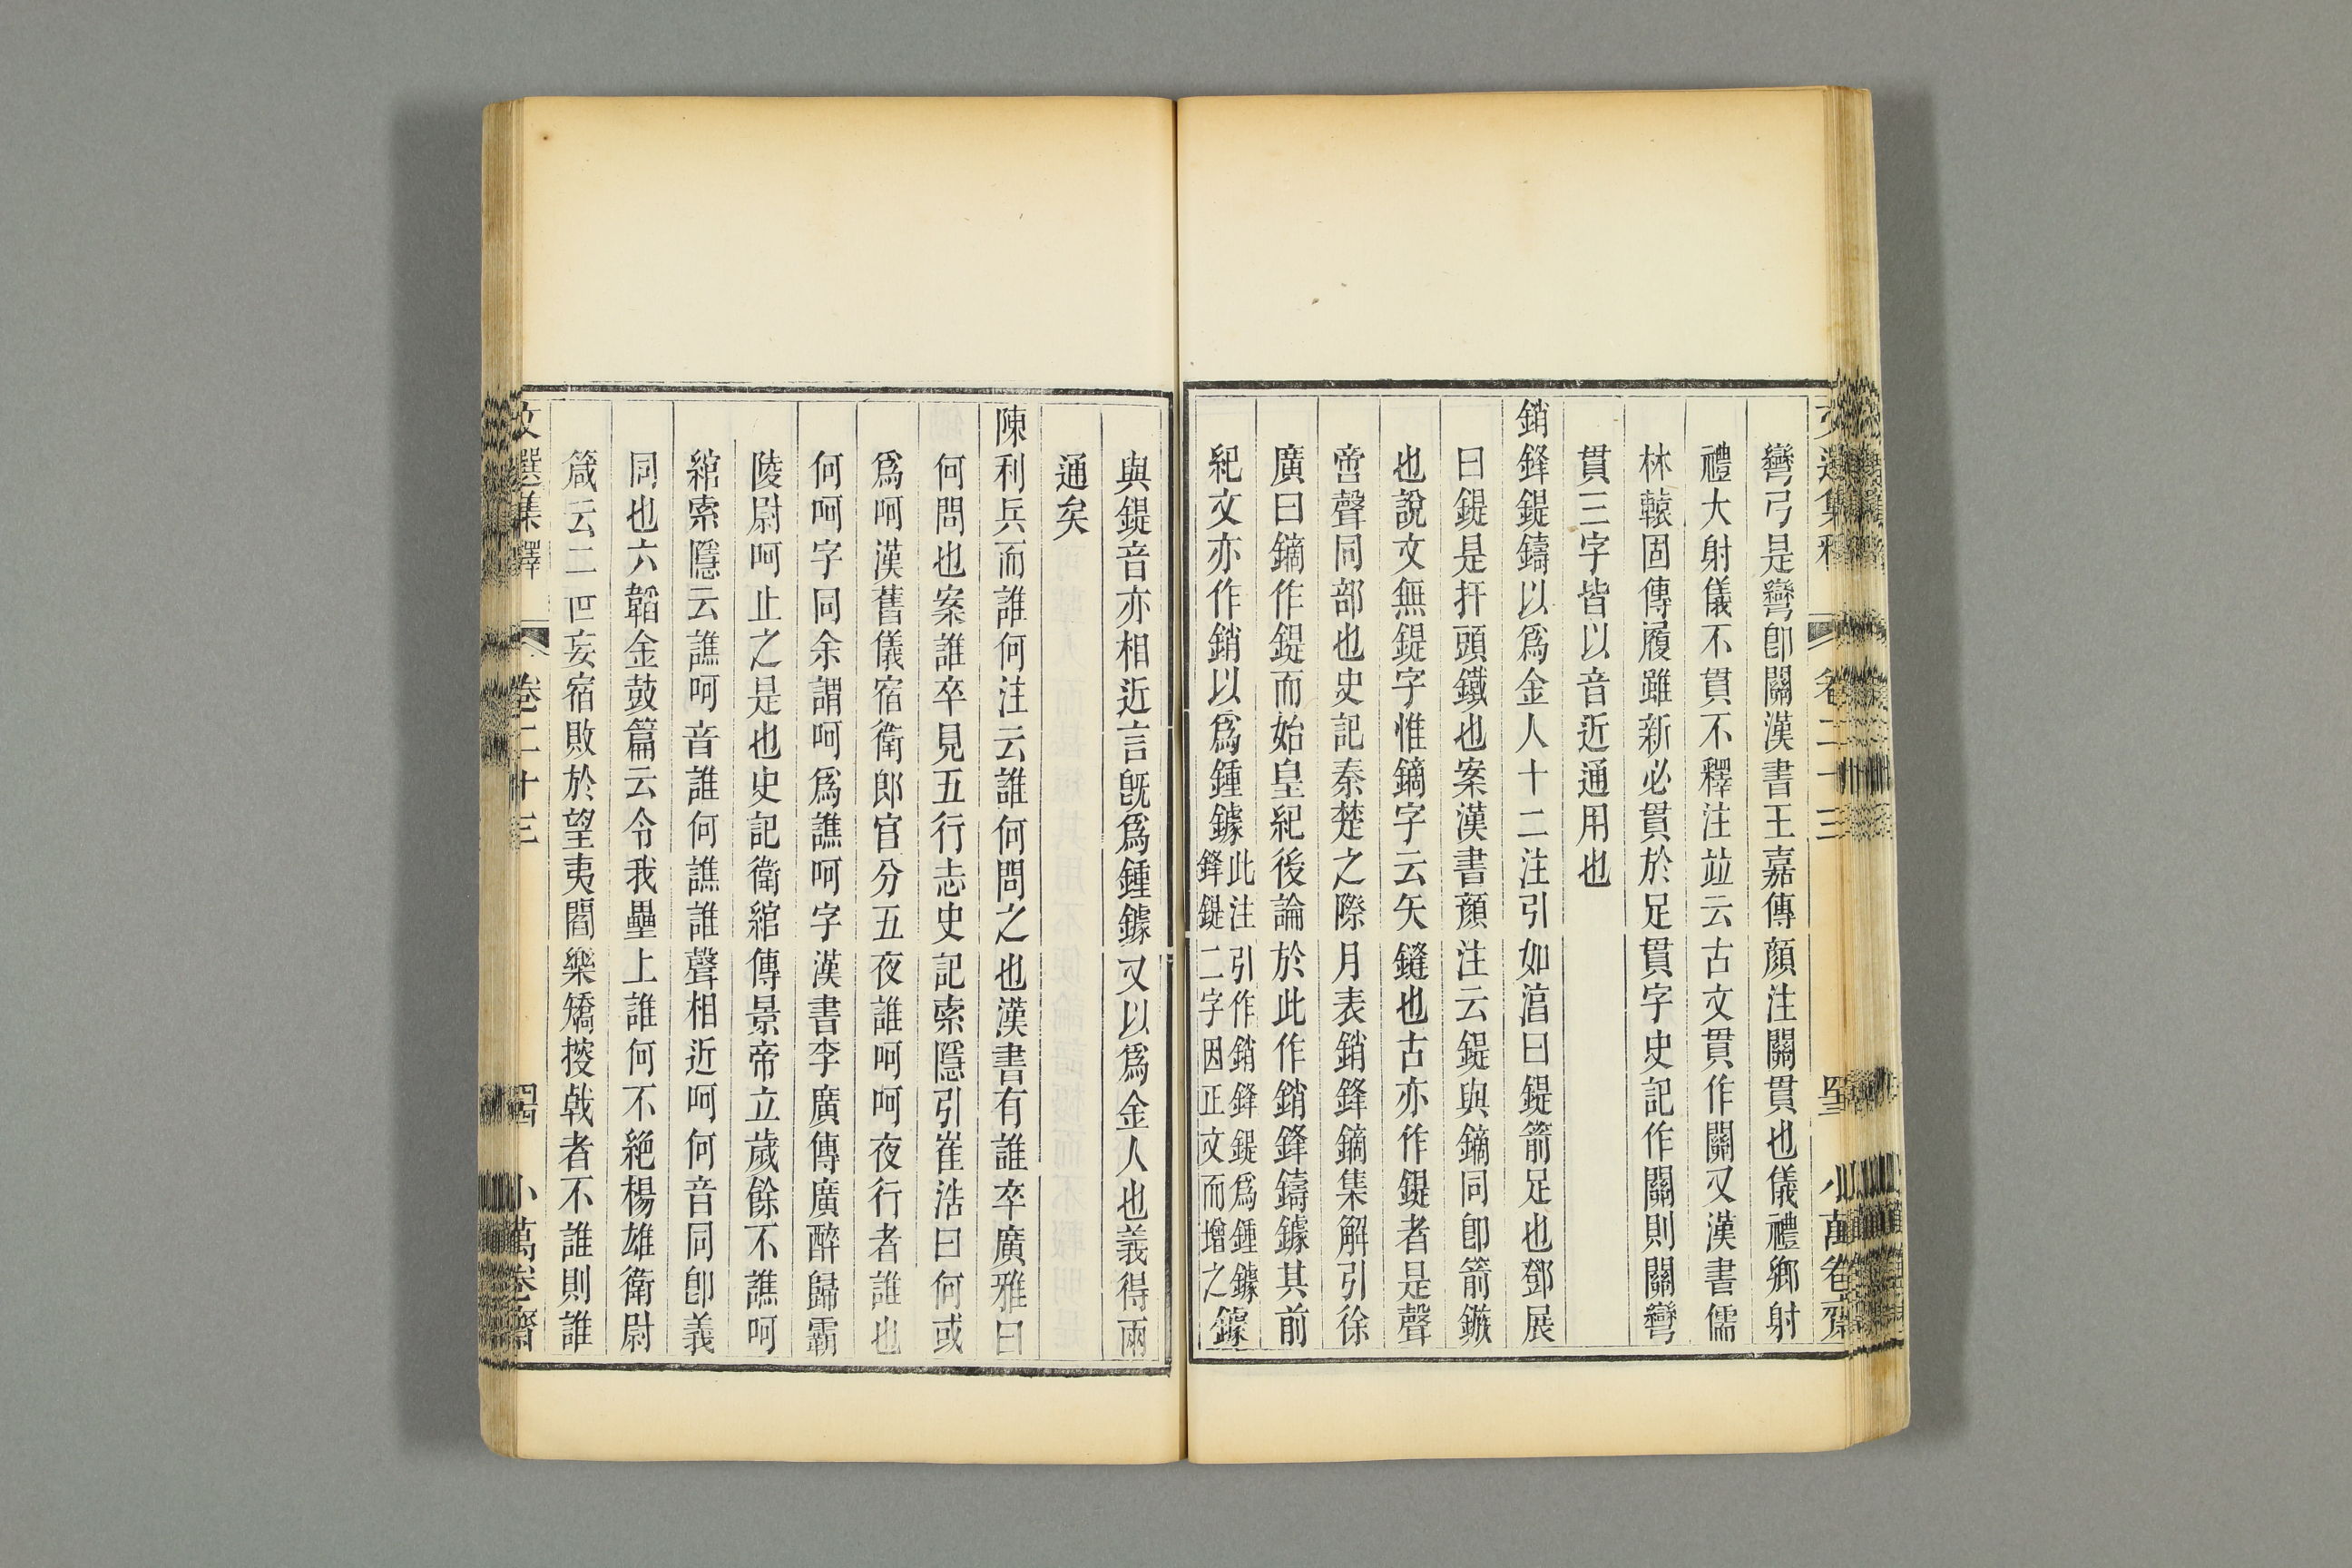 彎弓是彎卽關漢書王嘉傳顔注關貫也儀禮鄉射
禮大射儀不貫不釋注竝云古文貫作關又漢書儒
林轅固傳履雖新必貫於足貫字史記作關則關彎
貫三字皆以音近通用也
銷鋒鍉鑄以爲金人十二注引如湻曰鍉箭足也鄧展
曰鍉是扞頭鐵也案漢書顏注云鍉與鏑同卽箭鏃
也說文無鍉字惟鏑字云矢鏠也古亦作鍉者是聲
啻聲同部也史記秦楚之際月表銷鋒鏑集解引徐
廣曰鏑作鍉而始皇紀後論於此作銷鋒鑄鐻其前
紀文亦作銷以爲鍾鐻此注引作銷鋒鍉爲鍾鐻鋒鍉二字因正文而增之鐻
與鍉音亦相近言旣爲鍾鐻又以爲金人也義得兩
通矣
陳利兵而誰何注云誰何問之也漢書有誰卒廣雅曰
何問也案誰卒見五行志史記索隱引崔浩曰何或
爲呵漢舊儀宿衛郎官分五夜誰呵呵夜行者誰也
何呵字同余謂呵爲譙呵字漢書李廣傳廣醉歸霸
陵尉呵止之是也史記衛綰傳景帝立歲餘不譙呵
綰索隱云譙呵音誰何譙誰聲相近呵何音同卽義
同也六韜金鼓篇云令我壘上誰何不絶楊雄衛尉
箴云二世妄宿敗於望夷閻樂矯搾戟者不誰則誰
文選集釋 卷二十三 四四 小萬卷齋